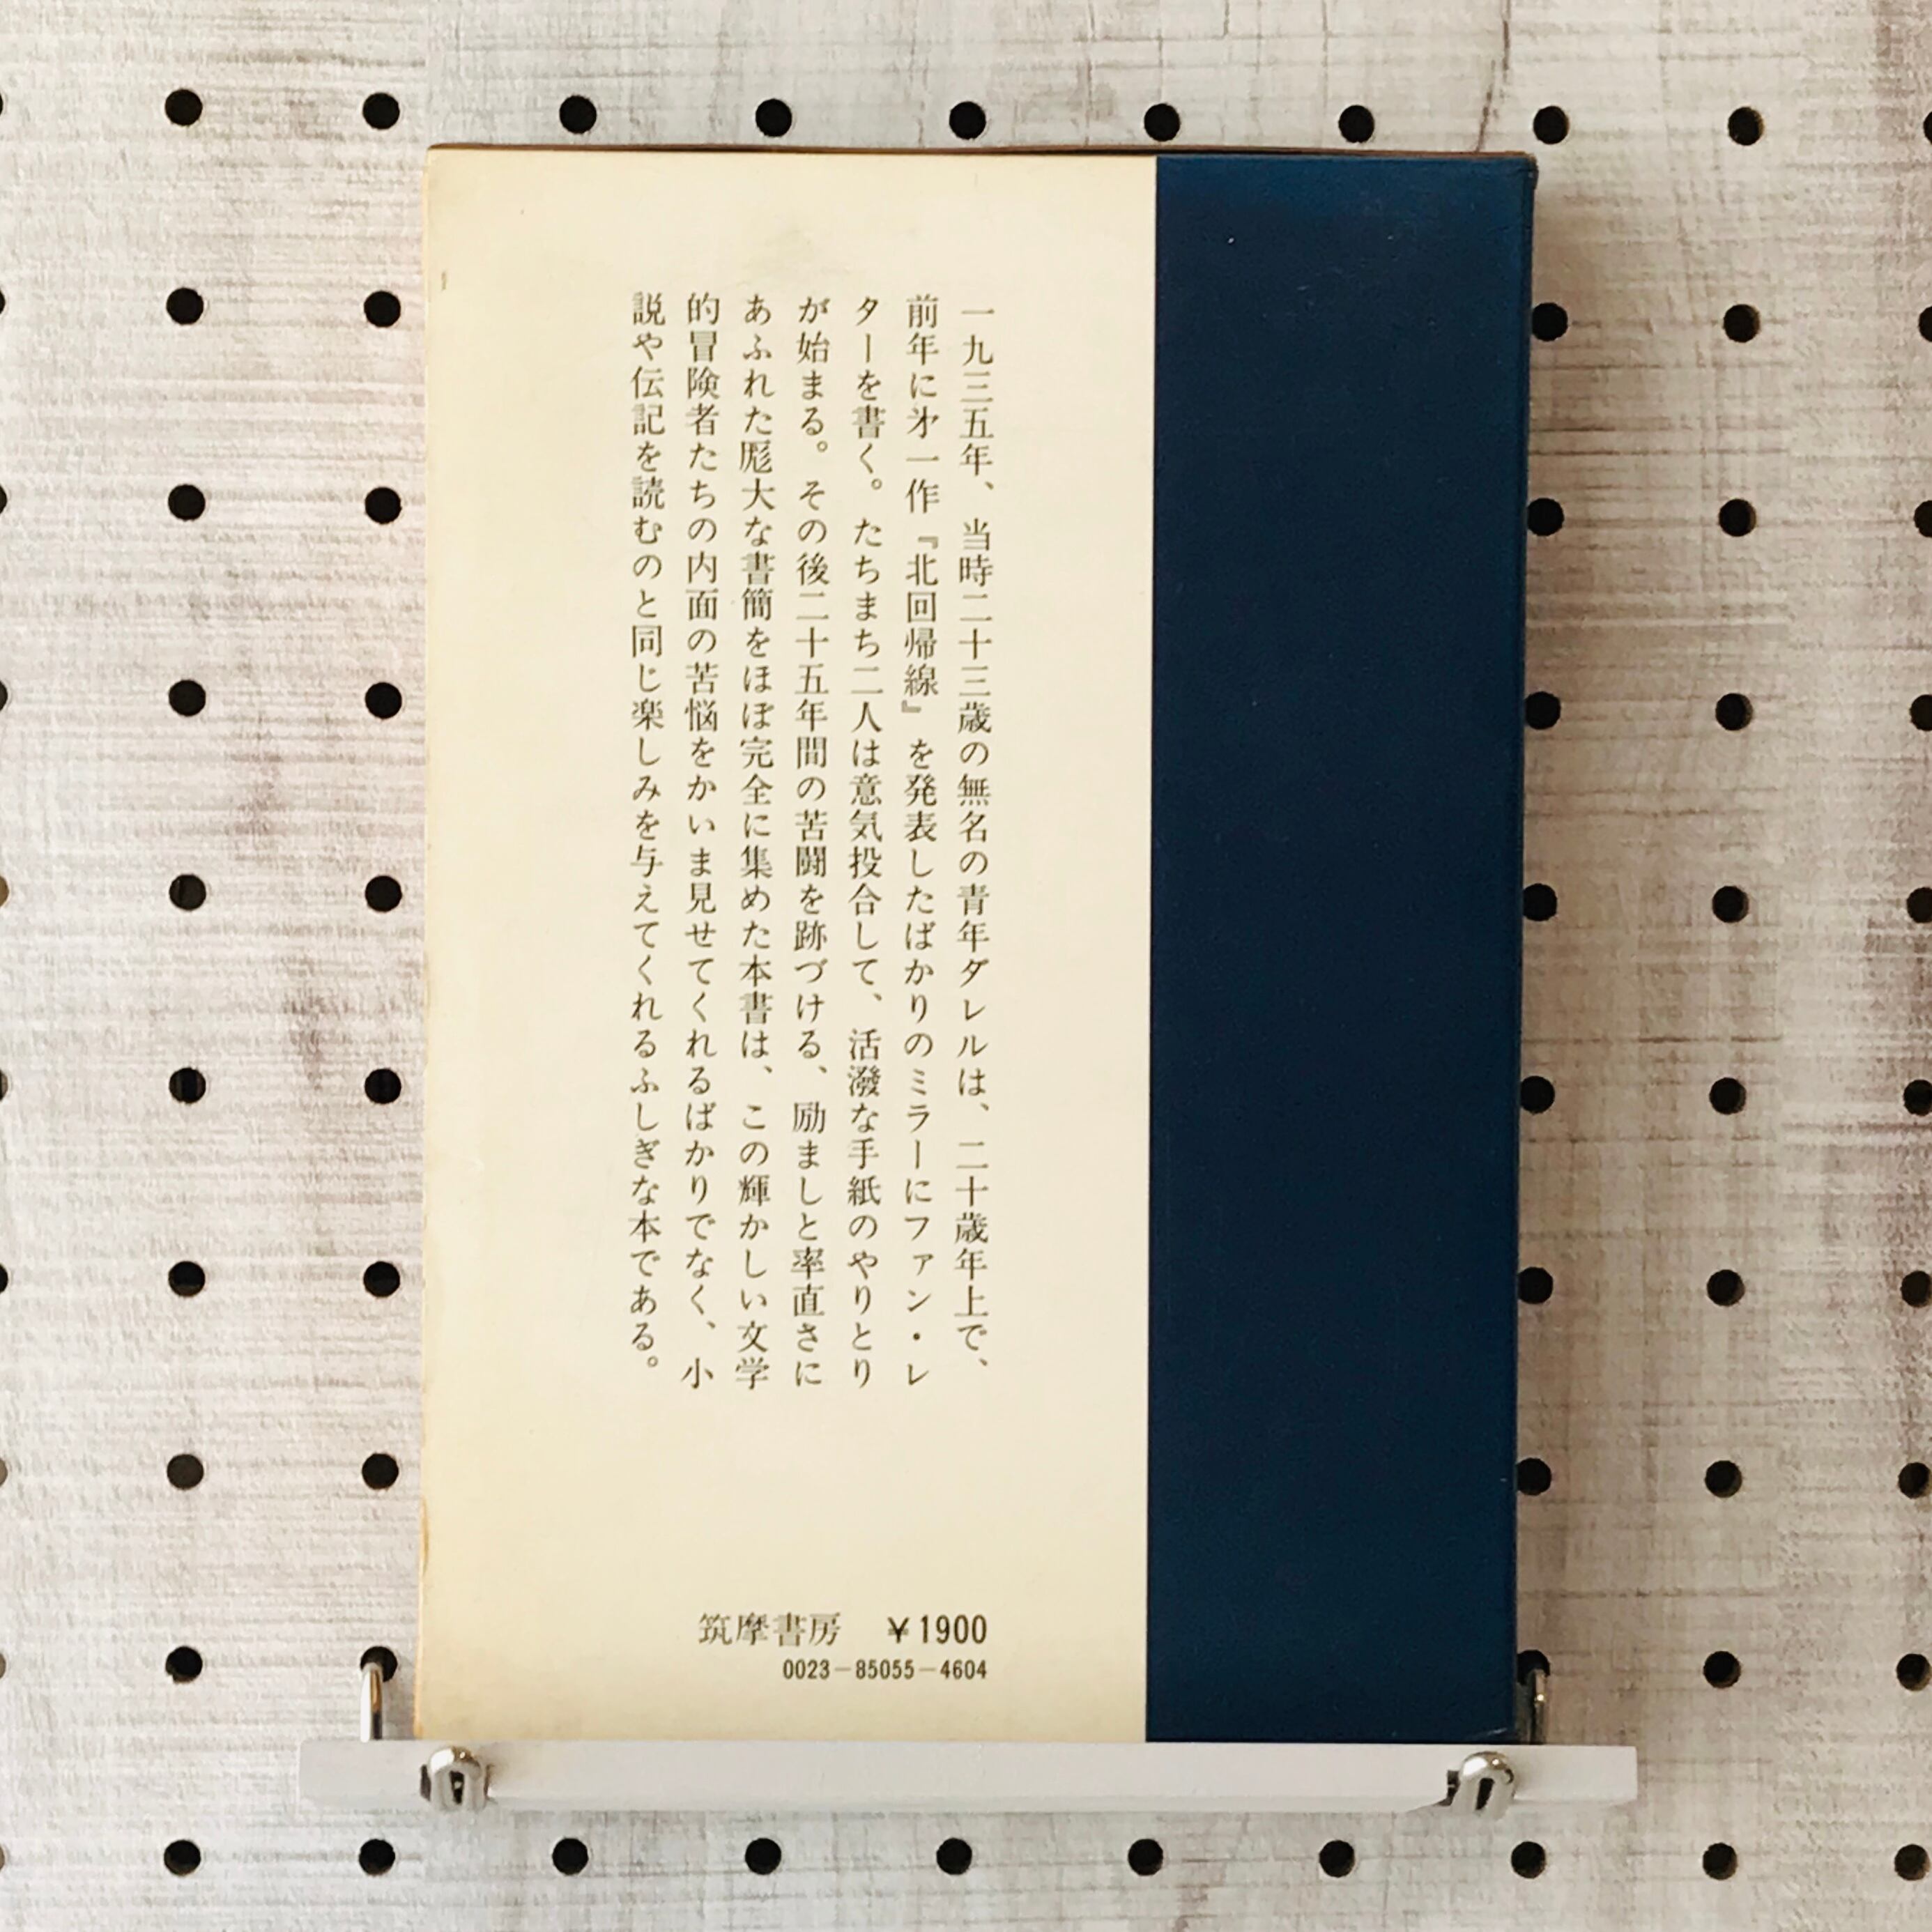 一九三五年、当時二十三歳の無名の青年ダレルは、二十歳年上で、
前年に㐧一作『北回帰線』を発表したばかりのミラーにファン・レ
ターを書く。たちまち二人は意気投合して、活潑な手紙のやりとり
が始まる。その後二十五年間の苦闘を跡づける、励ましと率直さに
あふれた厖大な書簡をほぼ完全に集めた本書は、この輝かしい文学
的冒険者たちの内面の苦悩をかいま見せてくれるばかりでなく、小
説や伝記を読むのと同じ楽しみを与えてくれるふしぎな本である。
筑摩書房 ¥1900
0023-85055-4604